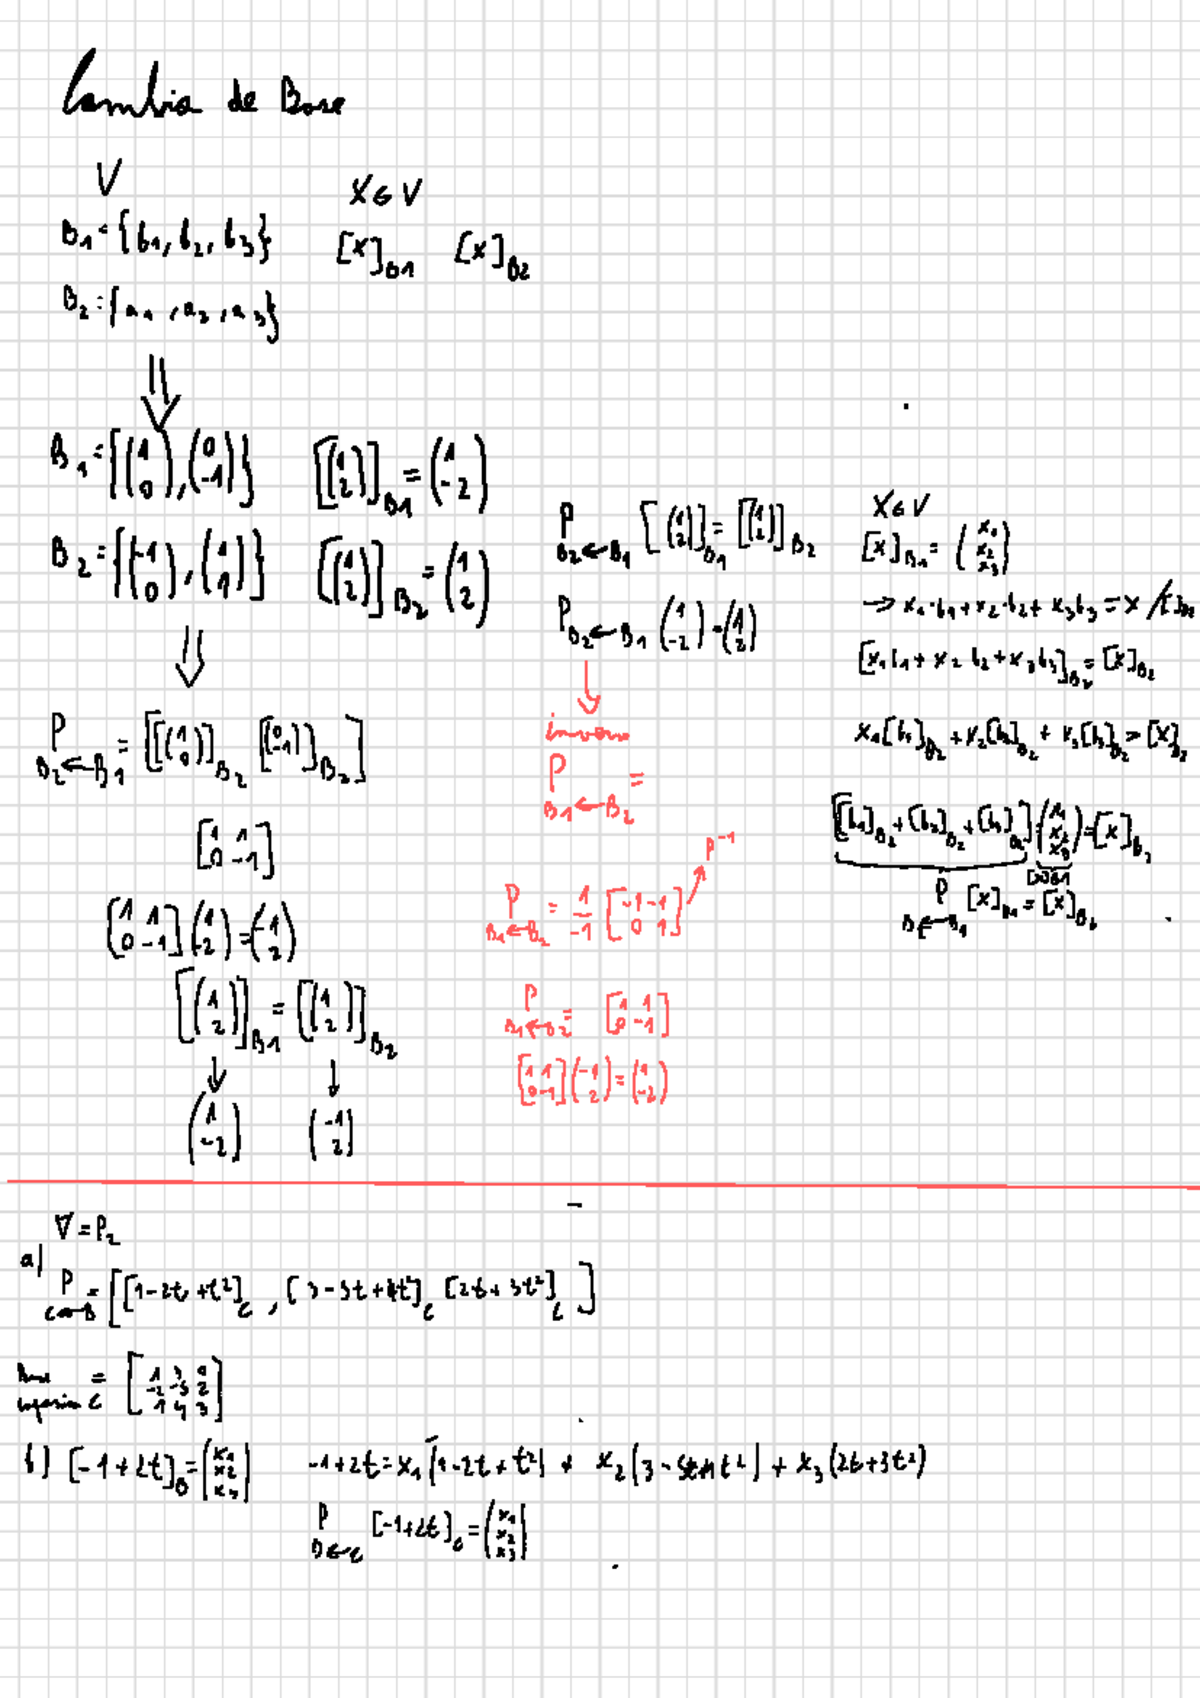 Cambio de Base
V
X ∈ V
B1 = {b1, b2, b3}
[X]B1 [X]B2
B2 = {a1, a2, a3}
⇓
B1 = {(1 0), (0 -1)} [(1 2)]B1 = (1 -2)
B2 = {(-1 0), (1 1)} [(1 2)]B2 = (1 2)
⇓
P B2←B1 = [[(1 0)]B2 [(0 -1)]B2]
[1 1
0 -1]
[1 1
0 -1] (1 -2) = (-1 2)
[(1 2)]B1 = [(1 2)]B2
↓ ↓
(1 -2) (-1 2)
P B2←B1 [(1 2)]B1 = [(1 2)]B2
P B2←B1 (1 -2) = (1 2)
↓
inversa
P B1←B2 =
P⁻¹
P B1←B2 = 1/-1 [-1 -1
0 1]
P B1←B2 = [1 1
0 -1]
[1 1
0 -1] (-1 2) = (1 -2)
X ∈ V
[X]B1 = (x1 x2 x3)
→ x1·b1 + x2·b2 + x3b3 = X / []B2
[x1b1 + x2b2 + x3b3]B2 = [X]B2
x1[b1]B2 + x2[b2]B2 + x3[b3]B2 = [X]B2
[[b1]B2 + [b2]B2 + [b3]B2] · (x1 x2 x3) = [X]B2
P B2←B1 [X]B1 = [X]B2
V = P2
a) P C←B = [[1-2t+t²]C, [3-5t+4t²]C [2t+3t²]C]
Base C = [1 3 0
-2 -5 2
1 4 3]
b) [-1+2t]B = (x1 x2 x3) -1+2t = x1(1-2t+t²) + x2(3-5t+4t²) + x3(2t+3t²)
P B←C [-1+2t]C = (x1 x2 x3)